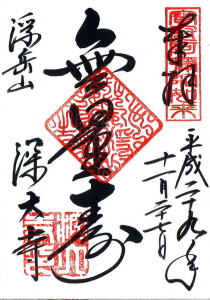 奉拝
平成二十九年
十一月二十七日
無量寿
浮岳山
深大寺